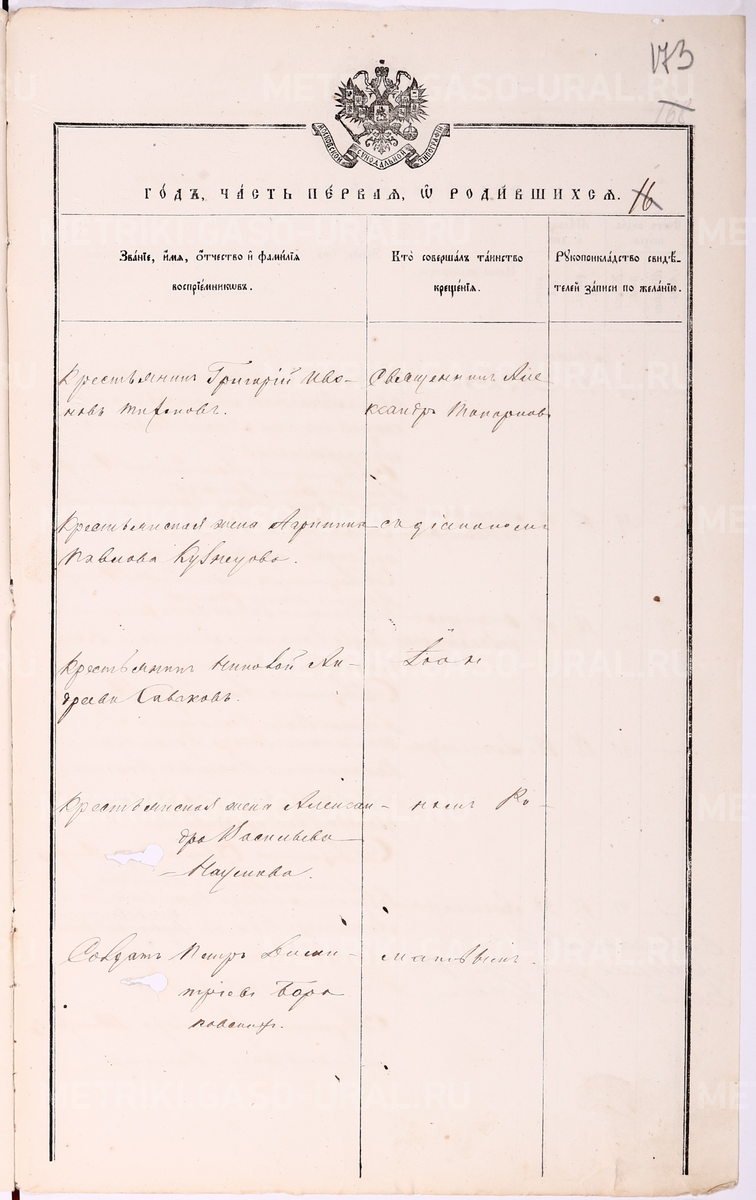 173
МОСКОВСКОЙ СУНОДАЛЬНОЙ ТИПОГРАФІИ
ГО́ДЪ, ЧА́СТЬ ПЕ́РВАЯ, Ѡ҆ РОДИ́ВШИХСѦ. 16
Зва́нїе, и҆́мѧ, ѻ҆́тчество и҆ фами́лїѧ
воспрїе́мникѡвъ.
Кто̀ соверша́лъ та́инство
креще́нїѧ.
Рꙋкоприкла́дство свидѣ́-
телей за́писи по жела́нїю.
Крестьянинъ Григорій Ива-
новъ
Священникъ Але
ксандръ Топорковъ
Крестьянская жена Агрипина
Павлова Кузнецова.
съ діакономъ
Крестьянинъ Николай Ан-
дреевъ
Іоан
Крестьянская жена Алексан-
дра Васильева
Наумова.
номъ Ко-
Солдатъ Петръ Дими-
тріевъ
METRIKI.GASO-URAL.RU